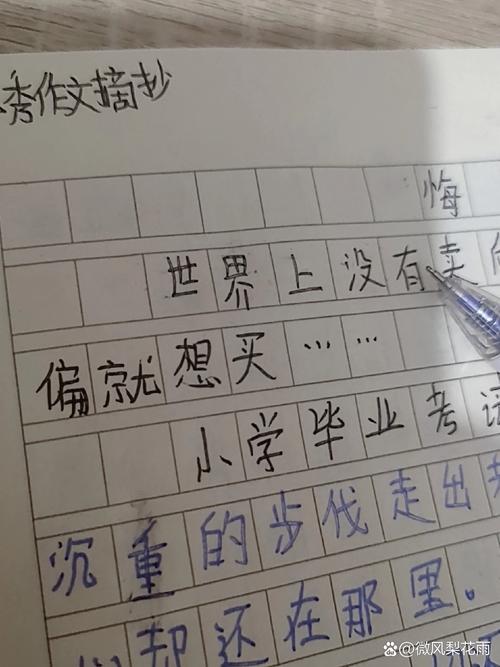 秀作文摘抄
悔
世界上没有卖
偏就想买……
小学毕业考
沉重的步伐走出
却还在那里。
@微风梨花雨